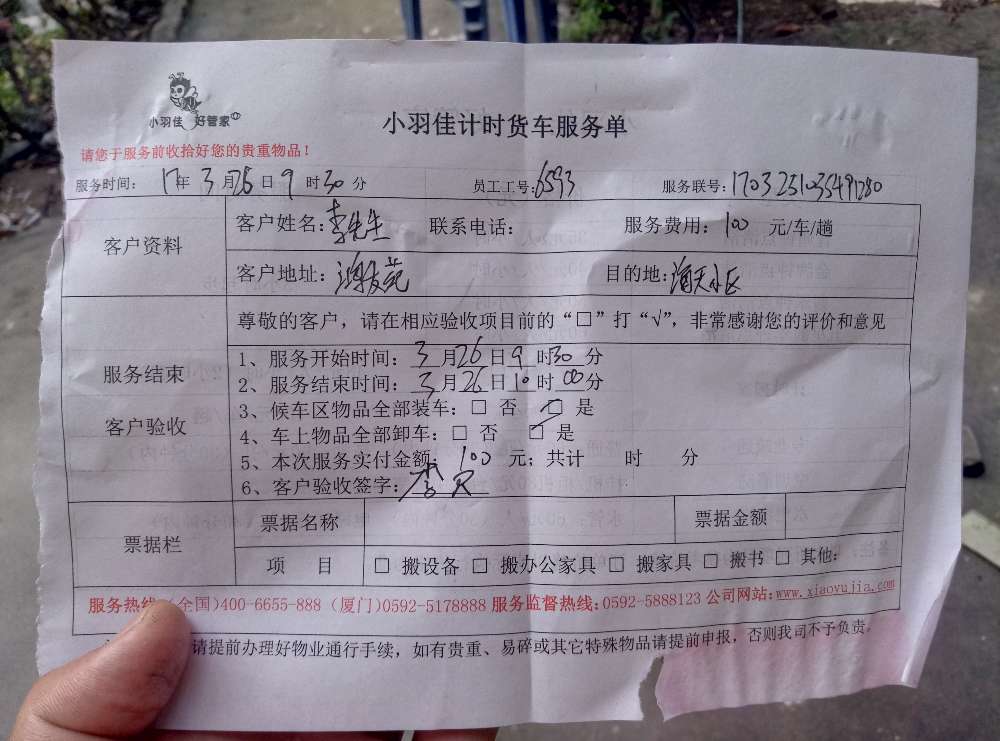 小羽佳 好管家
小羽佳计时货车服务单
请您于服务前收拾好您的贵重物品！
服务时间：17年3月26日9时30分 员工工号：6593 服务联号：1703251035491280
客户资料
客户姓名：李先生 联系电话： 服务费用：100 元/车/趟
客户地址： 目的地：
服务结束
客户验收
尊敬的客户，请在相应验收项目前的“□”打“√”，非常感谢您的评价和意见
1、服务开始时间：3月26日9时30分
2、服务结束时间：3月26日10时00分
3、候车区物品全部装车：□ 否 □ 是
4、车上物品全部卸车：□ 否 □ 是
5、本次服务实付金额：100元；共计 时 分
6、客户验收签字：李
票据栏
票据名称 票据金额
项 目 □ 搬设备 □ 搬办公家具 □ 搬家具 □ 搬书 □ 其他：
服务热线 全国)400-6655-888 (厦门)0592-5178888 服务监督热线：0592-5888123 公司网站：www.xiaoyujia.com
请提前办理好物业通行手续，如有贵重、易碎或其它特殊物品请提前申报，否则我司不予负责。